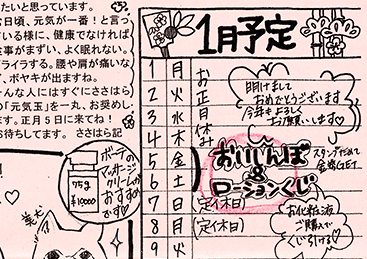 たいと思っています。
常日頃、元気が一番！と言っ
ている様に、健康でなければ
食事がまずい、よく眠れない。
イライラする。腰や肩が痛いな
ど、ボヤキが出ますね。
そんな人にはすぐにささはら
の「元気玉」を一丸、お奨めし
ます。正月5日に来てね！
お待ちしてます。 ささはら記
ボーテの
マッサージ
クリームが
おすすめ
です♡
75g
¥10000
美犬
1月予定
1 月 お
2 火 正
3 水 月
4 木 休
5 金 み
6 土
7 日 (定休日)
8 月 (定休日)
9 火
明けまして
おめでとうございます
今年もよろしく
お願いします♡
おいしんぼ
&
ローションくじ
スタンプためて
金券GET
お化粧液
ご購入で
くじ引ける♡